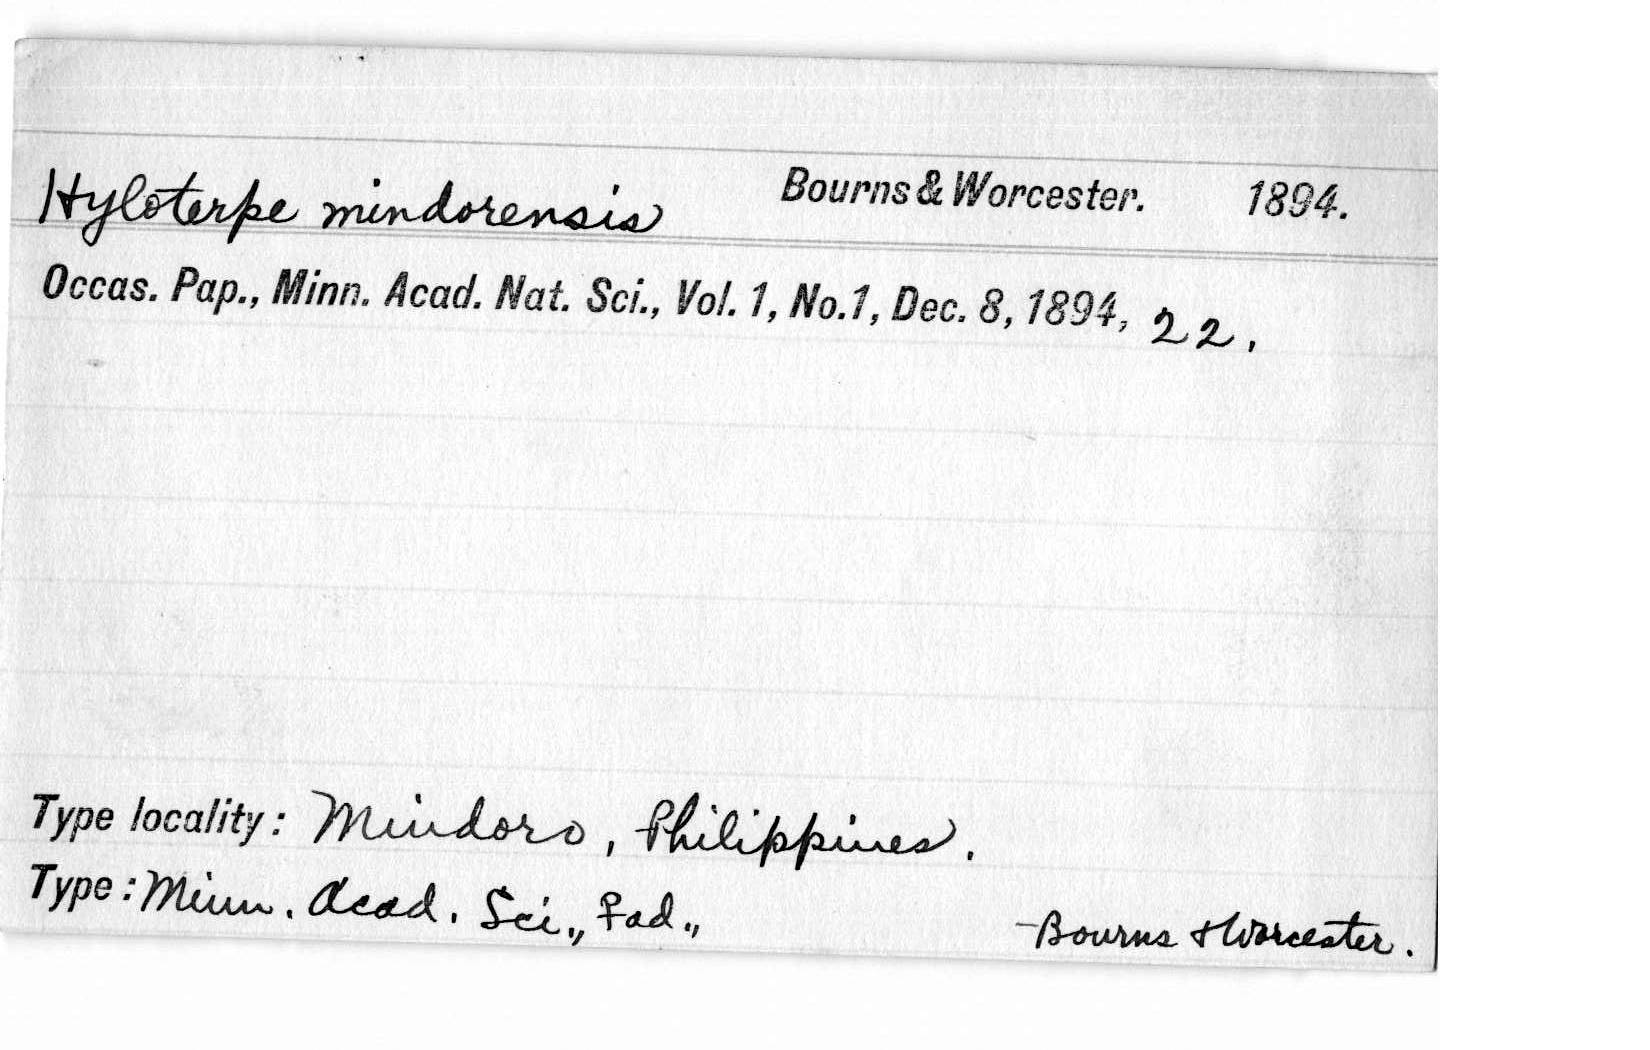 Hyloterpe mindorensis Bourns & Worcester. 1894.
Occas. Pap., Minn. Acad. Nat. Sci., Vol. 1, No.1, Dec. 8, 1894, 22.
Type locality: Mindoro, Philippines.
Type: Minn. Acad. Sci., ♀ad., Bourns & Worcester.